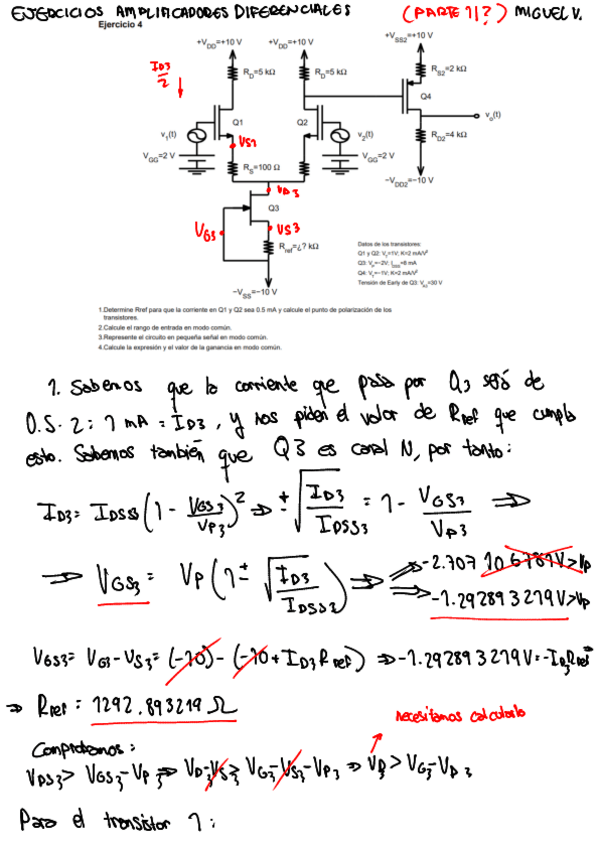 EJERCICIOS AMPLIFICADORES DIFERENCIALES (PARTE 1/?) MIGUEL V.
Ejercicio 4
+V_DD=+10 V +V_DD=+10 V +V_SS2=+10 V
I_D3/2
R_D=5 kΩ R_D=5 kΩ R_S2=2 kΩ
Q4
v_1(t) Q1 Q2 v_2(t) v_o(t)
VS1
R_D2=4 kΩ
V_GG=2 V V_GG=2 V
R_S=100 Ω
-V_DD2=-10 V
VD3
Q3
VG3 VS3
R_ref=¿? kΩ
-V_SS=-10 V
Datos de los transistores:
Q1 y Q2: V_t=1V; K=2 mA/V²
Q3: V_P=-2V; I_DSS=8 mA
Q4: V_t=-1V; K=2 mA/V²
Tensión de Early de Q3: =30 V
1.Determine Rref para que la corriente en Q1 y Q2 sea 0.5 mA y calcule el punto de polarización de los
transistores.
2.Calcule el rango de entrada en modo común.
3.Represente el circuito en pequeña señal en modo común.
4.Calcule la expresión y el valor de la ganancia en modo común.
1. Sabemos que la corriente que pasa por Q3 será de
0.5·2 = 1 mA = I_D3, y nos piden el valor de Rref que cumpla
esto. Sabemos también que Q3 es canal N, por tanto:
I_D3 = I_DSS3 (1 - V_GS3/V_P3)² ⇒ ±√(I_D3/I_DSS3) = 1 - V_GS3/V_P3 ⇒
⇒ V_GS3 = V_P (1 ± √(I_D3/I_DSS3)) ⇒ ⇒ -2.707106781V>Vp
⇒ -1.292893219V>Vp
V_GS3 = V_G3 - V_S3 = (-10) - (-10 + I_D3 Rref) ⇒ -1.292893219V = -I_D3 Rref
⇒ Rref = 1292.893219 Ω
necesitamos calcularlo
Comprobamos:
V_DS3 > V_GS3 - V_P3 ⇒ V_D3 - V_S3 > V_G3 - V_S3 - V_P3 ⇒ V_D3 > V_G3 - V_P3
Para el transistor 1: